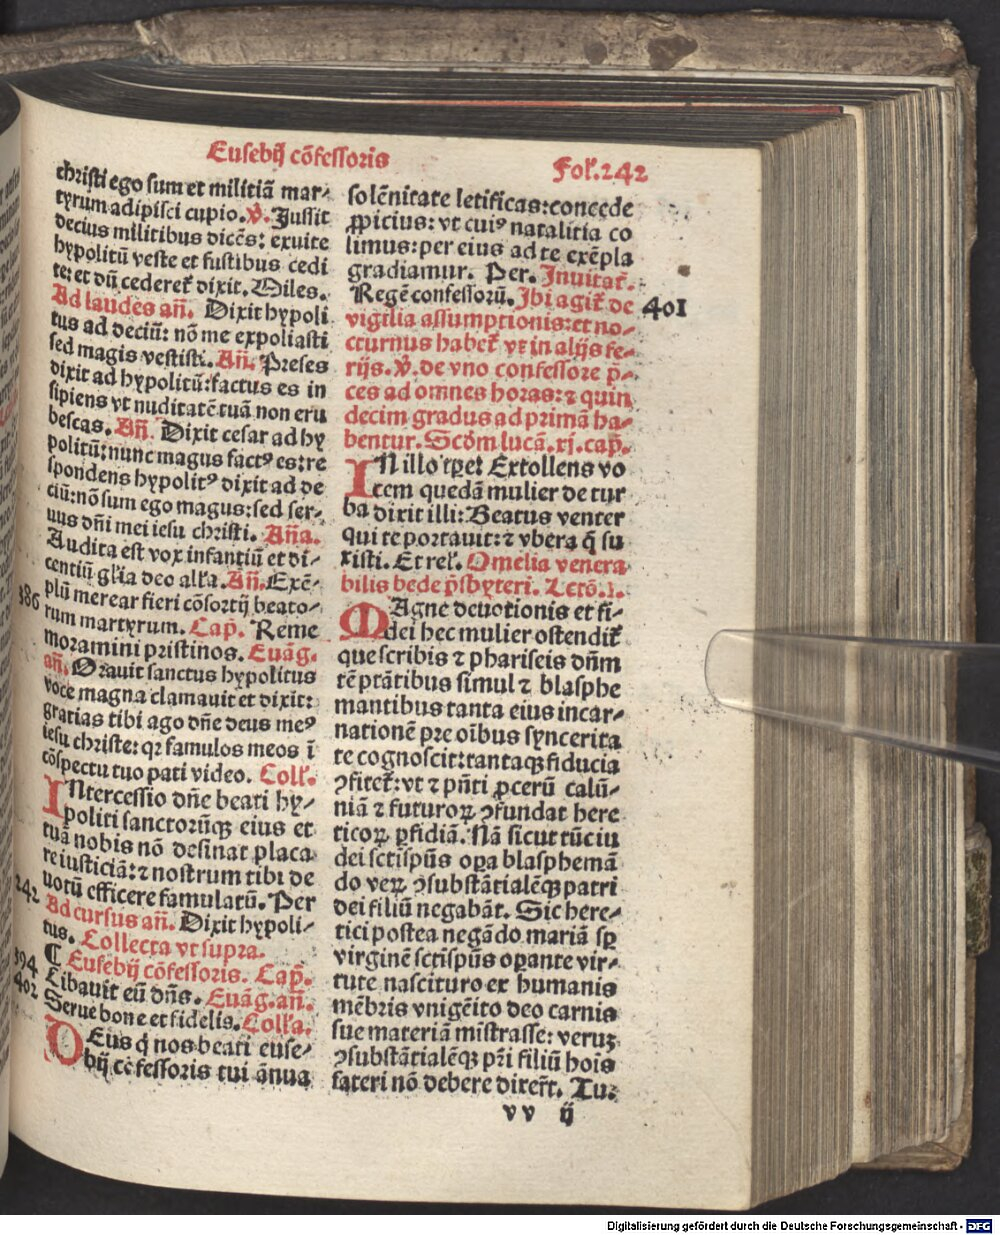 Eusebij cōfessoris
Fol'.242
christi ego sum et militiā mar⸗
tyrum adipisci cupio. V̄. Jussit
decius militibus dicēs: exuite
hypolitū veste et fustibus cedi
te: et dū cederet᷑ dixit. Miles.
Ad laudes añ. Dixit hypoli
tus ad deciū: nō me expoliasti
sed magis vestisti. Añ. Preses
dixit ad hypolitū: factus es in
sipiens vt nuditatē tuā non eru
bescas. Añ. Dixit cesar ad hy
politū: nunc magus factꝰ es: re
spondens hypolitꝰ dixit ad de
ciū: nō sum ego magus: sed ser⸗
uus dñi mei iesu christi. Aña.
Audita est vox infantiū et di⸗
centiū gl'ia deo all'a. Añ. Exē⸗
386
plū merear fieri cōsortij beato⸗
rum martyrum. Cap̄. Reme
moramini pristinos. Euāg.
añ. Orauit sanctus hypolitus
voce magna clamauit et dixit:
gratias tibi ago dñe deus meꝰ
iesu christe: qꝛ famulos meos ī
cōspectu tuo pati video. Coll'.
INtercessio dñe beati hy⸗
politi sanctorūqꝫ eius et
tuā nobis nō desinat placa
re iusticiā: ⁊ nostrum tibi de
242
uotū efficere famulatū. Per
Ad cursus añ. Dixit hypoli⸗
tus. Collecta vt supra.
394
¶ Eusebij cōfessoris. Cap̄.
402
Cibauit eū dñs. Euāg. añ.
Serue bone et fidelis. Coll'a.
DEus q̇ nos beati euse⸗
bij cōfessoris tui ānua
solēnitate letificas: concede
ꝓpicius: vt cuiꝰ natalitia co
limus: per eius ad te exēpla
gradiamur. Per. Inuitat᷑.
Regē confessorū. Ibi agit᷑ de
401
vigilia assumptionis: et no⸗
cturnus habet᷑ vt in alijs fe⸗
rijs. V̄. de vno confessore p̄⸗
ces ad omnes horas: ⁊ quin
decim gradus ad primā ha⸗
bentur. Scḋm lucā. xj. cap̄.
IN illo tꝑe: Extollens vo
cem quedā mulier de tur
ba dixit illi: Beatus venter
qui te portauit: ⁊ vbera q̄ su
xisti. Et rel'. Omelia venera
bilis bede p̄sbyteri. Lectō. 1.
MAgne deuotionis et fi⸗
dei hec mulier ostendit᷑
que scribis ⁊ phariseis dñm
tēptātibus simul ⁊ blasphe
mantibus tanta eius incar⸗
nationē pre oībus syncerita
te cognoscit: tantaqꝫ fiducia
ꝯfitet᷑: vt ⁊ pñti ꝓcerū calū⸗
niā ⁊ futuroꝝ ꝯfundat here
ticoꝝ ꝑfidiā. Nā sicut tūc iu
dei sctīspūs oꝑa blasphemā
do veꝝ ꝯsubstātialēqꝫ patri
dei filiū negabāt. Sic here⸗
tici postea negādo mariā sꝑ
virginē sctīspūs oꝑante vir⸗
tute nascituro ex humanis
mēbris vnigēito deo carnis
sue materiā mīstrasse: veruꝫ
ꝯsubstātialēqꝫ pr̄i filiū hoīs
fateri nō debere dixer̄t. Tu:
vv ij
Digitalisierung gefördert durch die Deutsche Forschungsgemeinschaft - DFG